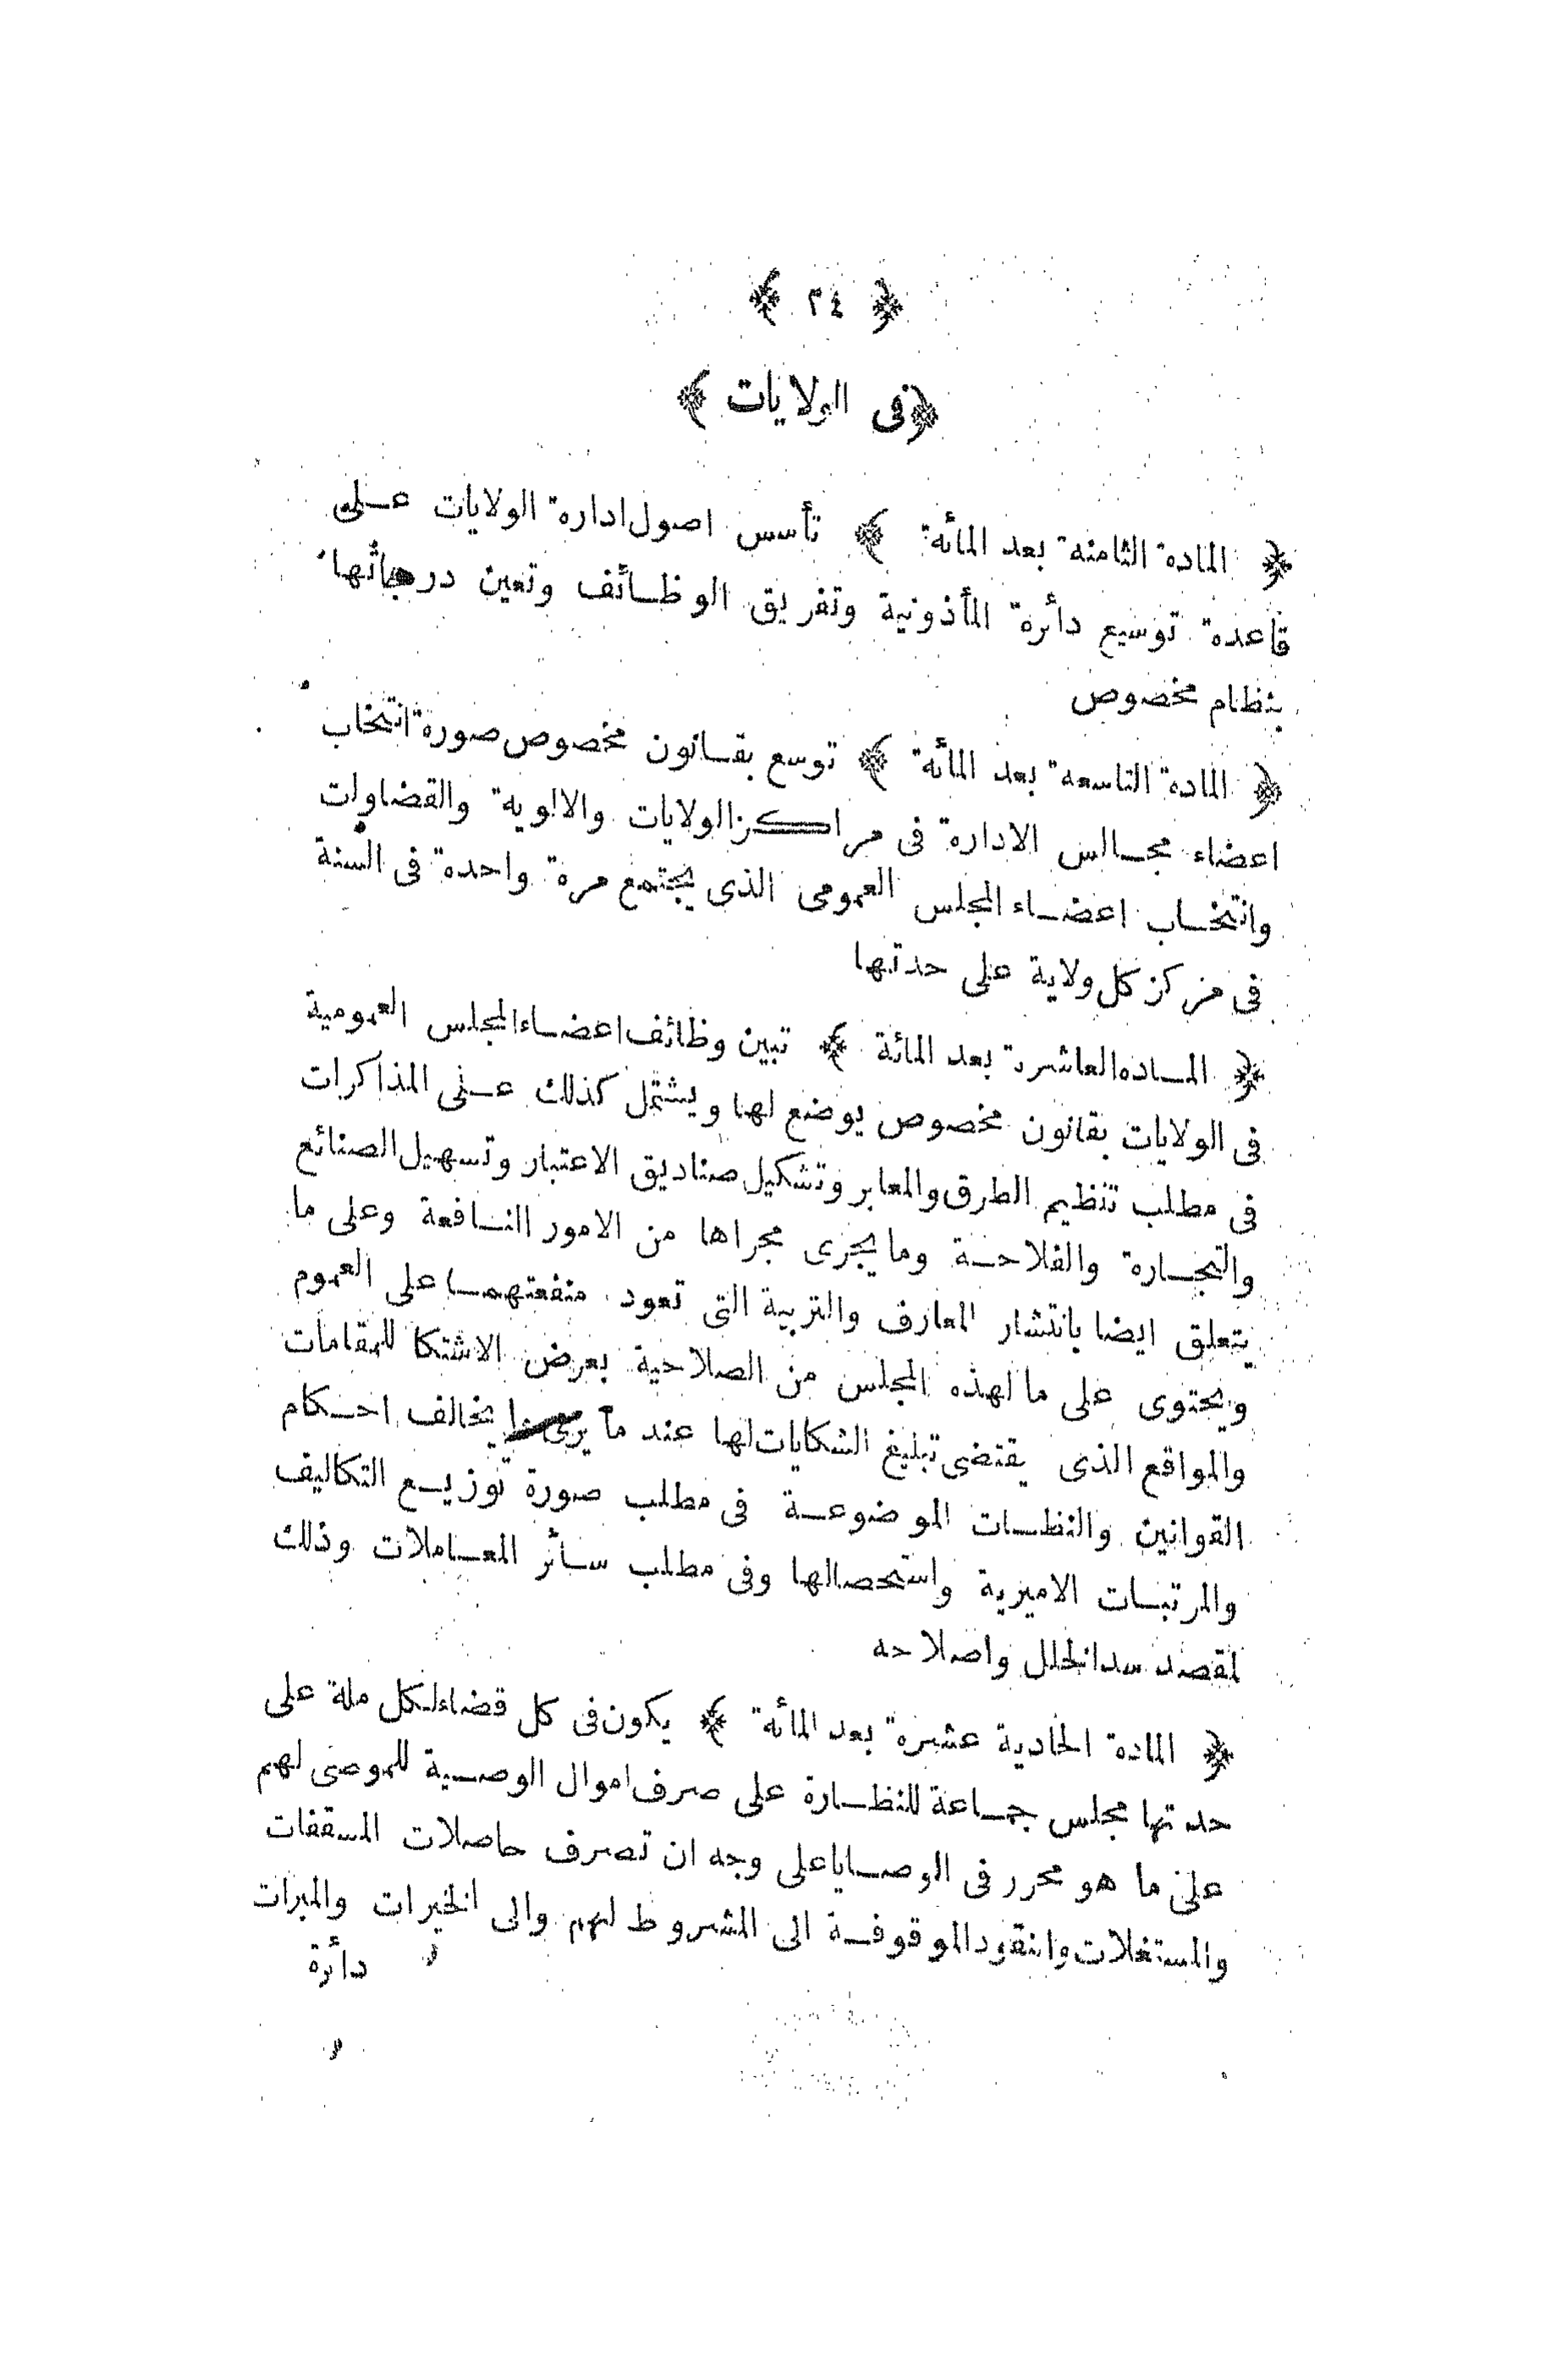 ﴿ ٣٤ ﴾
﴿ فى الولايات ﴾
﴿ المادة الثامنة بعد المائة ﴾ تأسس اصول ادارة الولايات على
قاعدة توسيع دائرة المأذونية وتفريق الوظائف وتعين درجاتها
بنظام مخصوص
﴿ المادة التاسعة بعد المائة ﴾ توسع بقانون مخصوص صورة انتخاب
اعضاء مجالس الادارة فى مراكز الولايات والالوية والقضاوات
وانتخاب اعضاء المجلس العمومى الذى يجتمع مرة واحدة فى السنة
فى مركز كل ولاية على حدتها
﴿ الماده العاشرة بعد المائة ﴾ تبين وظائف اعضاء المجلس العمومية
فى الولايات بقانون مخصوص يوضع لها ويشتمل كذلك على المذاكرات
فى مطلب تنظيم الطرق والمعابر وتشكيل صناديق الاعتبار وتسهيل الصنائع
والتجارة والفلاحة وما يجرى مجراها من الامور النافعة وعلى ما
يتعلق ايضا بانتشار المعارف والتربية التى تعود منفعتهما على العموم
ويحتوى على ما لهذه المجلس من الصلاحية بعرض الاشتكا للمقامات
والمواقع الذى يقتضى تبليغ الشكايات لها عند ما يرى يخالف احكام
القوانين والنظات الموضوعة فى مطلب صورة توزيع التكاليف
والمرتبات الاميرية واستحصالها وفى مطلب سائر المعاملات وذلك
لمقصد سد الخلل واصلاحه
﴿ المادة الحادية عشرة بعد المائة ﴾ يكون فى كل قضاء لكل ملة على
حدتها مجلس جماعة للنظارة على صرف اموال الوصية للموصى لهم
على ما هو محرر فى الوصايا على وجه ان تصرف حاصلات المسقفات
والمستغلات والنقود الموقوفة الى المشروط لهم والى الخيرات والمبرات
دائرة